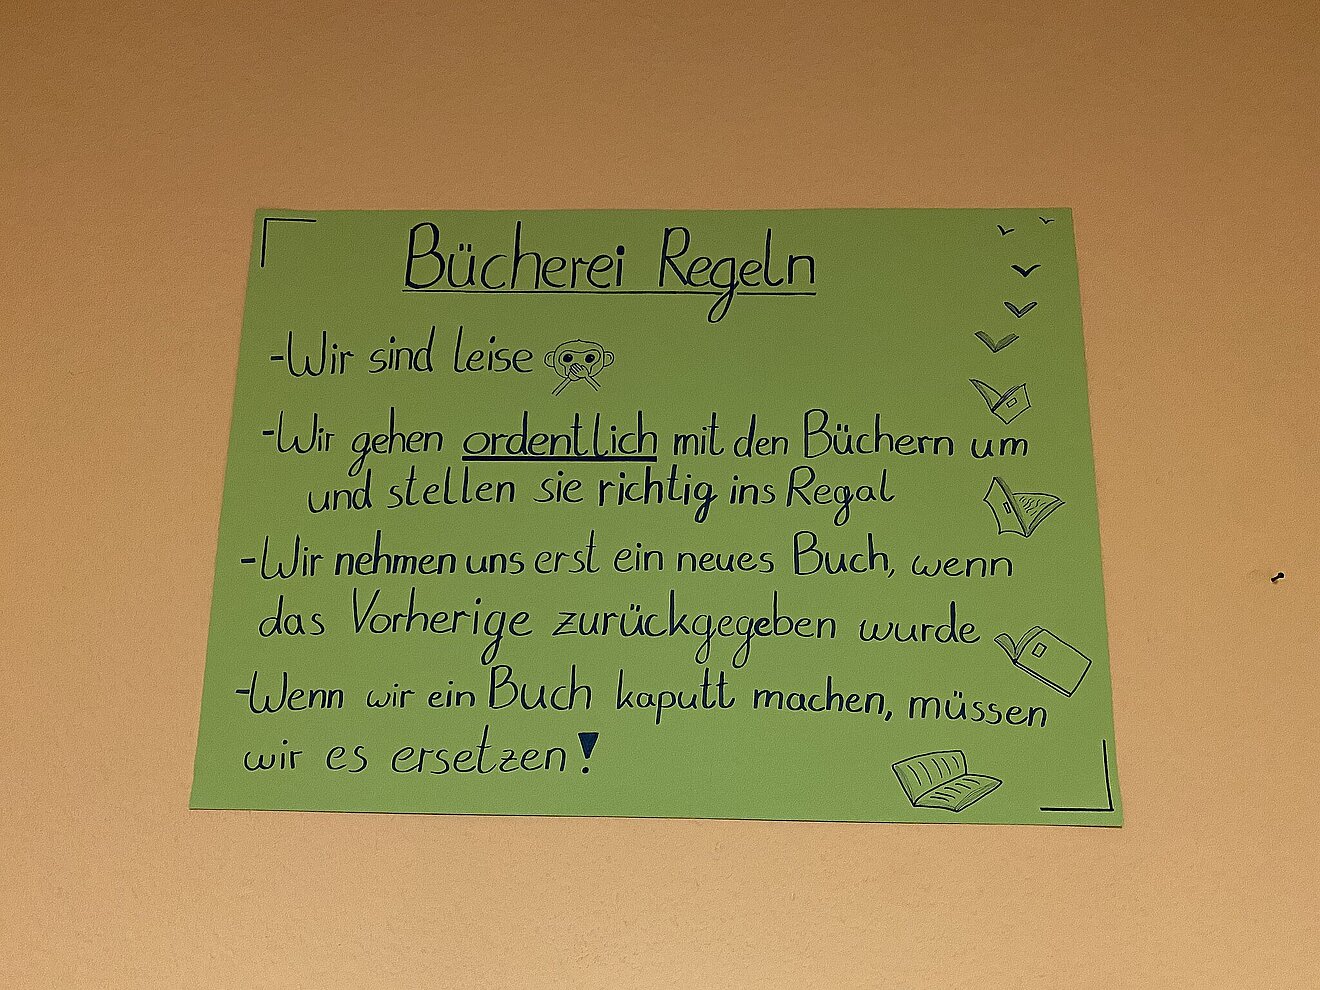 Bücherei Regeln
-Wir sind leise
-Wir gehen ordentlich mit den Büchern um
und stellen sie richtig ins Regal
-Wir nehmen uns erst ein neues Buch, wenn
das Vorherige zurückgegeben wurde
-Wenn wir ein Buch kaputt machen, müssen
wir es ersetzen!